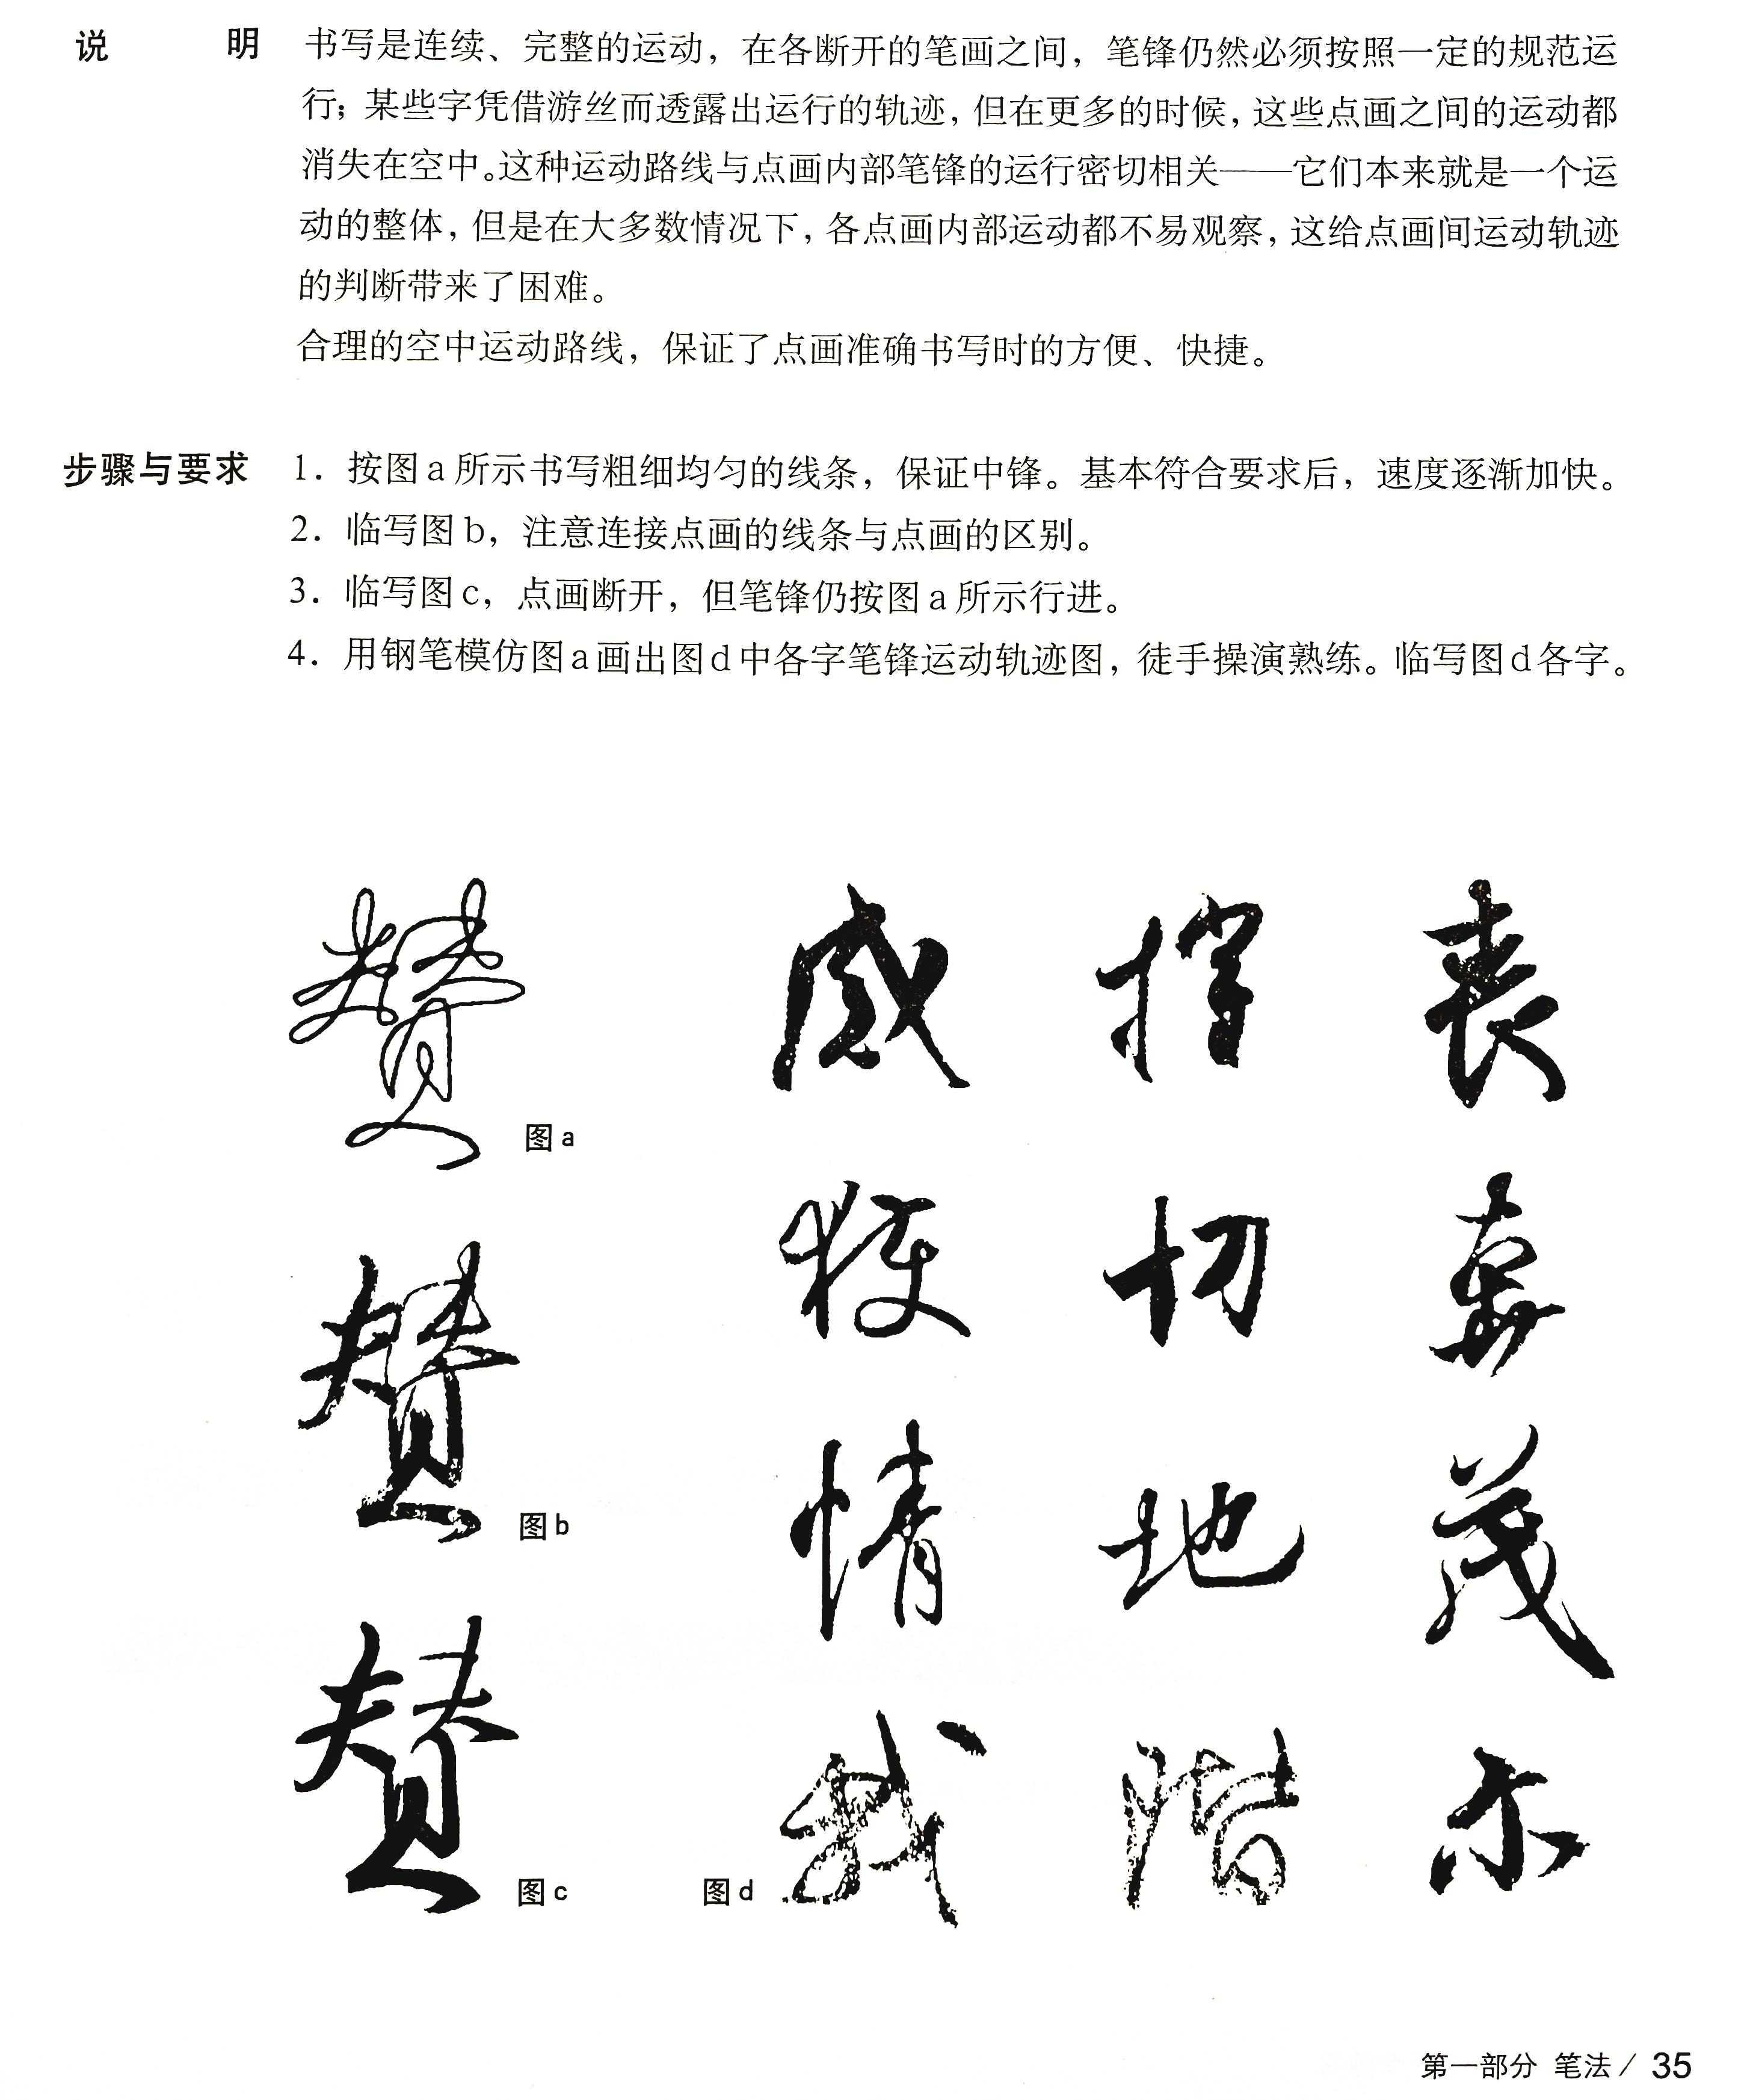 说 明 书写是连续、完整的运动，在各断开的笔画之间，笔锋仍然必须按照一定的规范运
行；某些字凭借游丝而透露出运行的轨迹，但在更多的时候，这些点画之间的运动都
消失在空中。这种运动路线与点画内部笔锋的运行密切相关——它们本来就是一个运
动的整体，但是在大多数情况下，各点画内部运动都不易观察，这给点画间运动轨迹
的判断带来了困难。
合理的空中运动路线，保证了点画准确书写时的方便、快捷。
步骤与要求 1. 按图a所示书写粗细均匀的线条，保证中锋。基本符合要求后，速度逐渐加快。
2. 临写图b，注意连接点画的线条与点画的区别。
3. 临写图c，点画断开，但笔锋仍按图a所示行进。
4. 用钢笔模仿图a画出图d中各字笔锋运动轨迹图，徒手操演熟练。临写图d各字。
赞
图a
赞
图b
赞
图c
图d
威
情
我
切
地
階
丧
茂
尔
第一部分 笔法/ 35